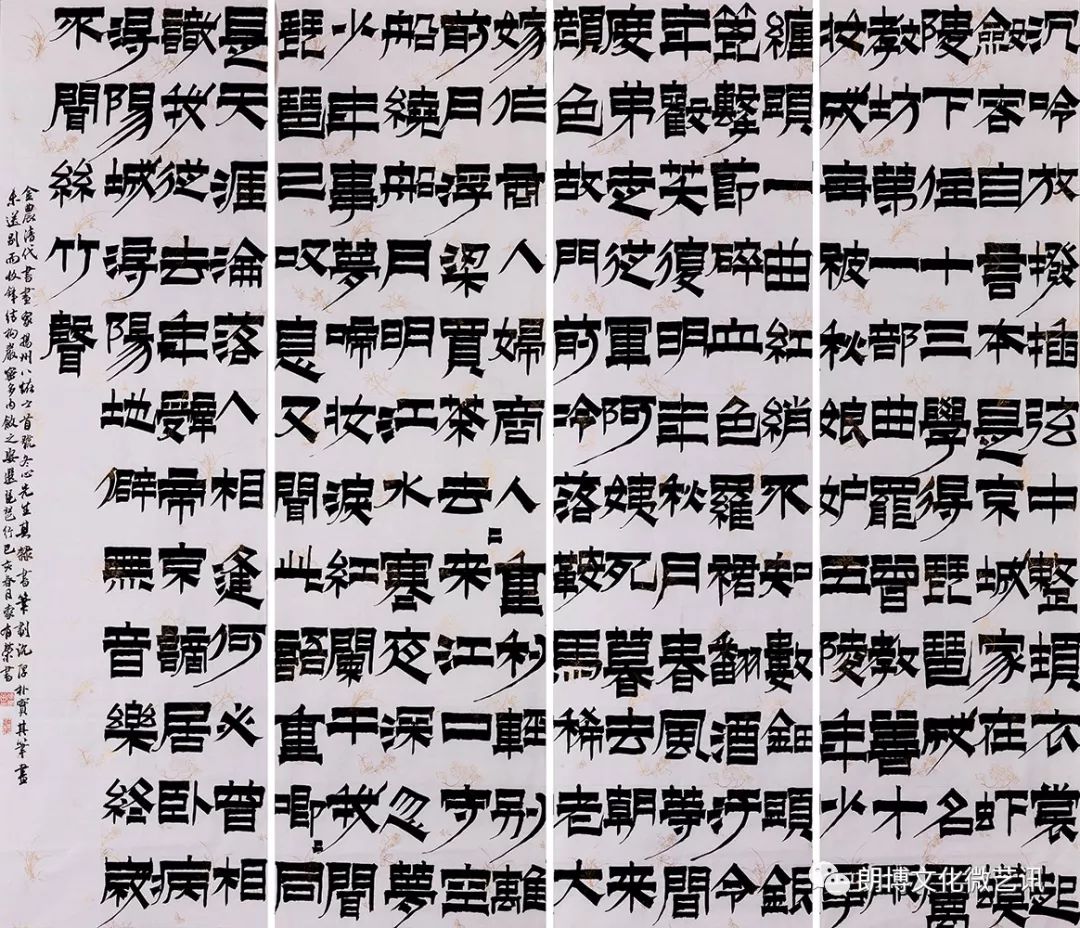 沉吟放撥插弦中整頓衣裳起
斂容自言本是京城家在虾蟆
陵下住十三學得琵琶成名屬
教坊第一部曲罷曾教善才
妝成每被秋娘妒五陵年少爭
纏頭一曲紅綃不知數鈿頭銀
篦擊節碎血色羅裙翻酒汙令
年歡笑復明年秋月春風等閒
度弟走從軍阿姨死暮去朝來
顏色故門前冷落鞍馬稀老大
嫁作商人婦商人=重利輕別離
前月浮梁買茶去來江口守空
船繞船月明江水寒夜深忽夢
少年事夢啼妝淚紅闌干我聞
琵琶已叹息又聞此語重唧=同
是天涯淪落人相逢何必曾相
識我從去年辭帝京謫居臥病
潯陽城潯陽地僻無音樂終歲
不聞絲竹聲
金農清代書畫家揚州八怪之首號冬心先生其隸書筆劃沉厚朴實其筆畫
未送到而收鋒結構嚴密多內斂之姿選琵琶行己亥春日家有榮書
朗博文化微艺讯